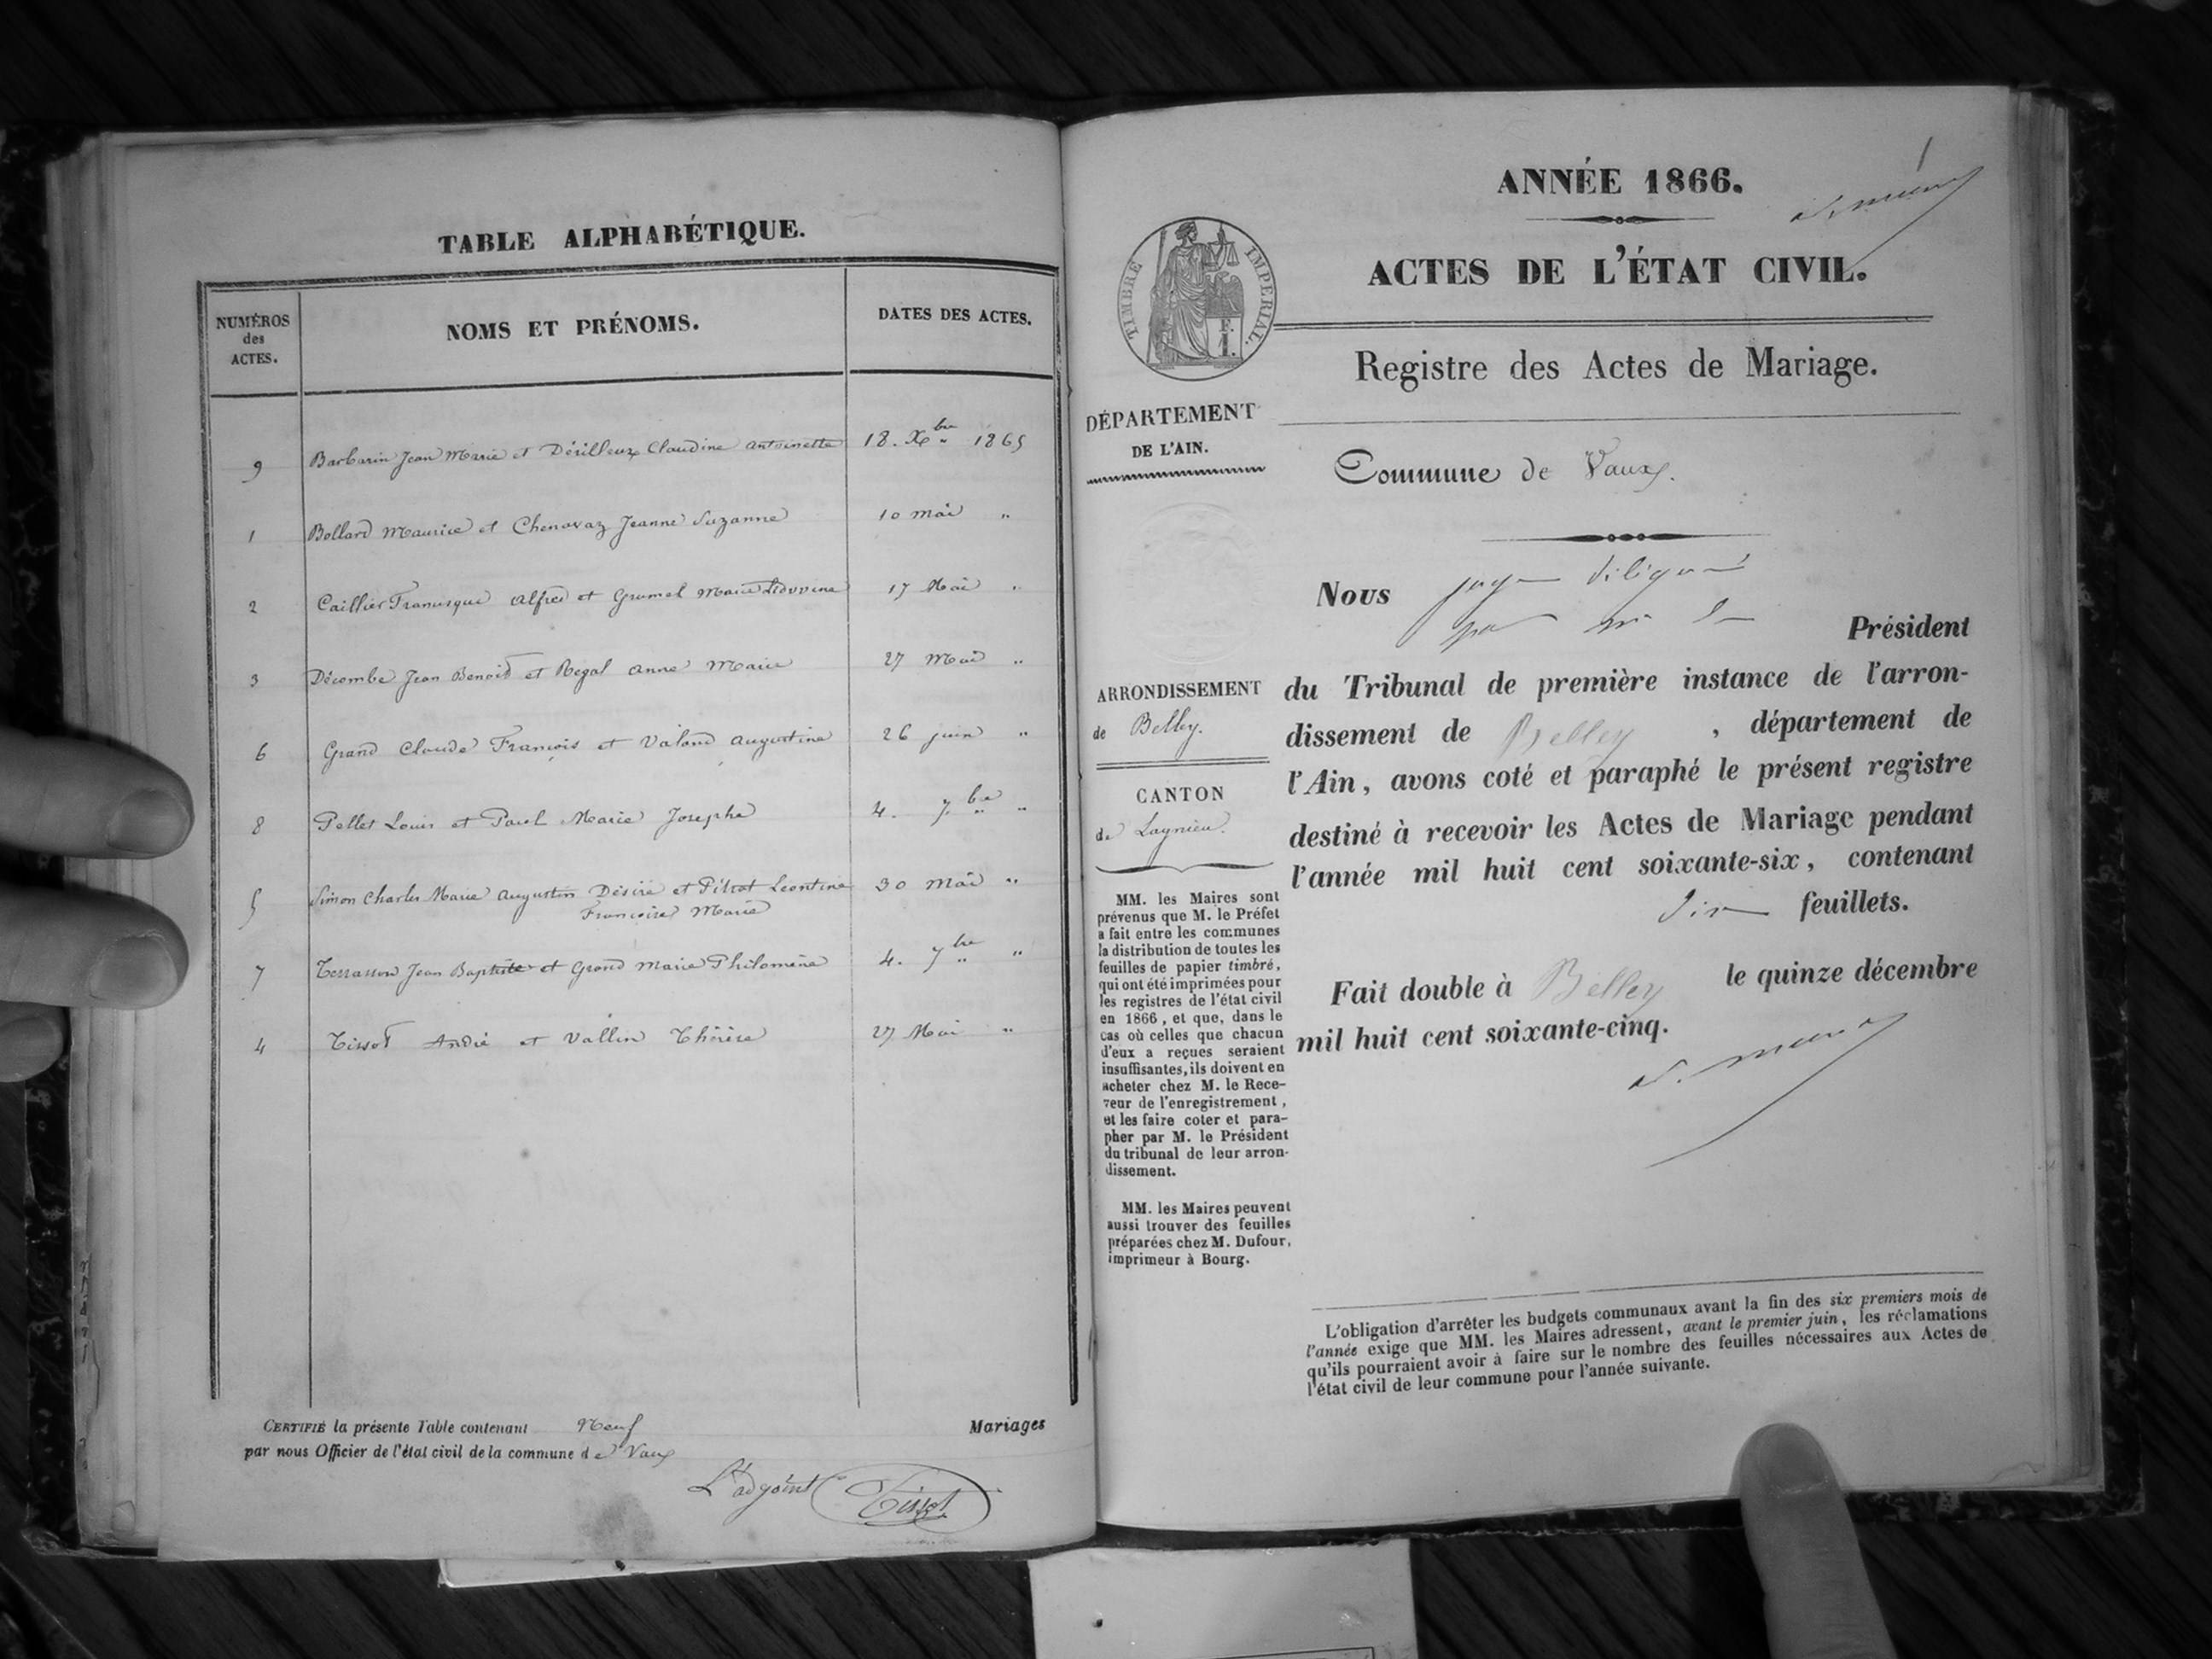 TABLE ALPHABÉTIQUE.
NUMÉROS
des
ACTES.
NOMS ET PRÉNOMS.
DATES DES ACTES.
9 Barbarin Jean Marie et Dérilleux Claudine Antoinette 18. Xbre 1865
1 Bollard Maurice et Chenavaz Jeanne Suzanne 10 mai "
2 Caillier Francisque Alfred et Grumel Marie Ludovine 17 Mai "
3 Décombe Jean Benoit et Regal Anne Marie 27 Mai "
6 Grand Claude François et Valand Augustine 26 juin "
8 Pellet Louis et Paul Marie Josephe 4. 7bre "
5 Simon Charles Marie Augustin Désiré et Pitrat Leontine 30 Mai "
Françoise Marie
7 Terrasson Jean Baptiste et Grand Marie Philomène 4. 7bre "
4 Tissot André et Vallin Thérèse 27 Mai "
CERTIFIÉ la présente Table contenant Neuf Mariages
par nous Officier de l'état civil de la commune de Vaux
L'adjoint Tissot
1
ANNÉE 1866.
ACTES DE L'ÉTAT CIVIL.
TIMBRE IMPERIAL.
F.
1.
Registre des Actes de Mariage.
DÉPARTEMENT
DE L'AIN.
Commune de Vaux.
Nous juge délégué
Président
ARRONDISSEMENT
de Belley.
CANTON
de Lagnieu.
du Tribunal de première instance de l'arron-
dissement de Belley, département de
l'Ain, avons coté et paraphé le présent registre
destiné à recevoir les Actes de Mariage pendant
l'année mil huit cent soixante-six, contenant
feuillets.
Fait double à Belley le quinze décembre
mil huit cent soixante-cinq.
MM. les Maires sont
prévenus que M. le Préfet
a fait entre les communes
la distribution de toutes les
feuilles de papier timbré,
qui ont été imprimées pour
les registres de l'état civil
en 1866, et que, dans le
cas où celles que chacun
d'eux a reçues seraient
insuffisantes, ils doivent en
acheter chez M. le Rece-
veur de l'enregistrement,
et les faire coter et para-
pher par M. le Président
du tribunal de leur arron-
dissement.
MM. les Maires peuvent
aussi trouver des feuilles
préparées chez M. Dufour,
imprimeur à Bourg.
L'obligation d'arrêter les budgets communaux avant la fin des six premiers mois de
l'année exige que MM. les Maires adressent, avant le premier juin, les réclamations
qu'ils pourraient avoir à faire sur le nombre des feuilles nécessaires aux Actes de
l'état civil de leur commune pour l'année suivante.